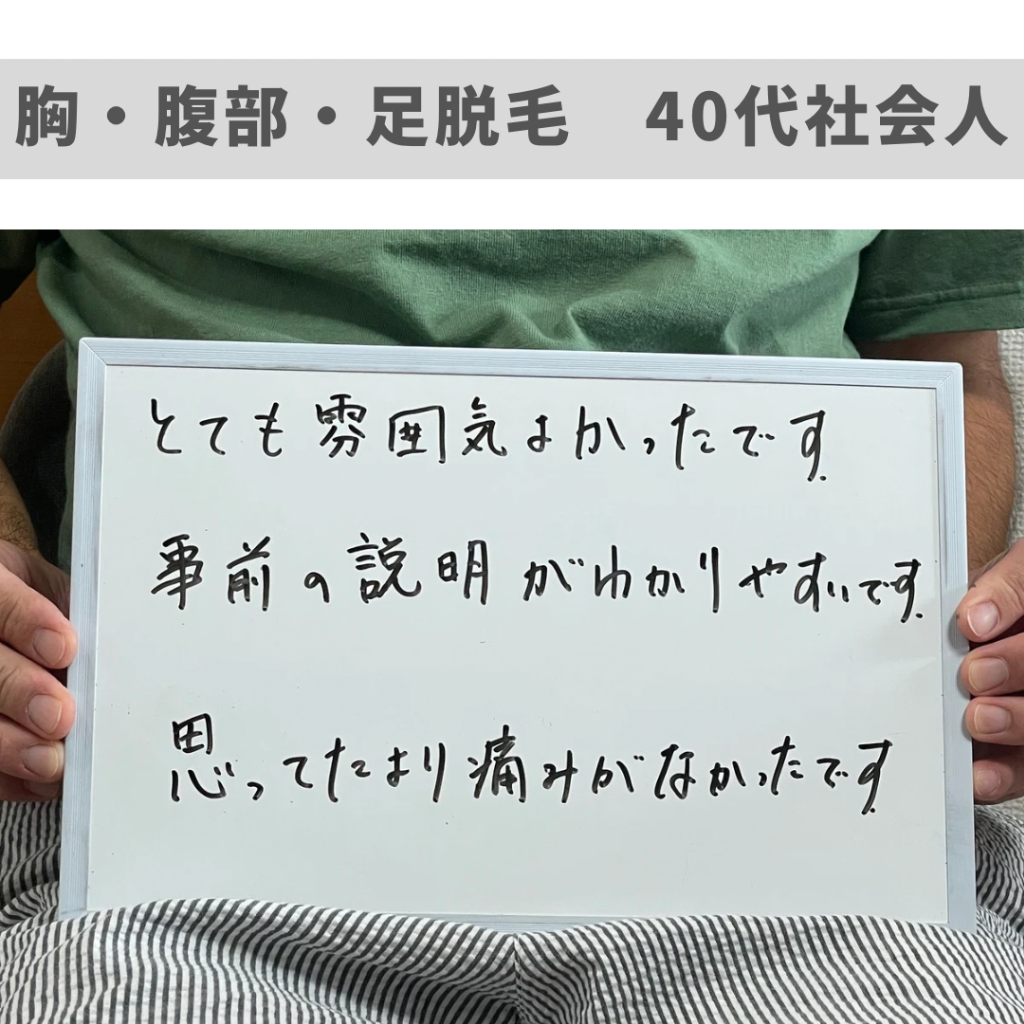 胸・腹部・足脱毛　40代社会人
とても雰囲気よかったです.
事前の説明がわかりやすいです.
思ってたより痛みがなかったです.